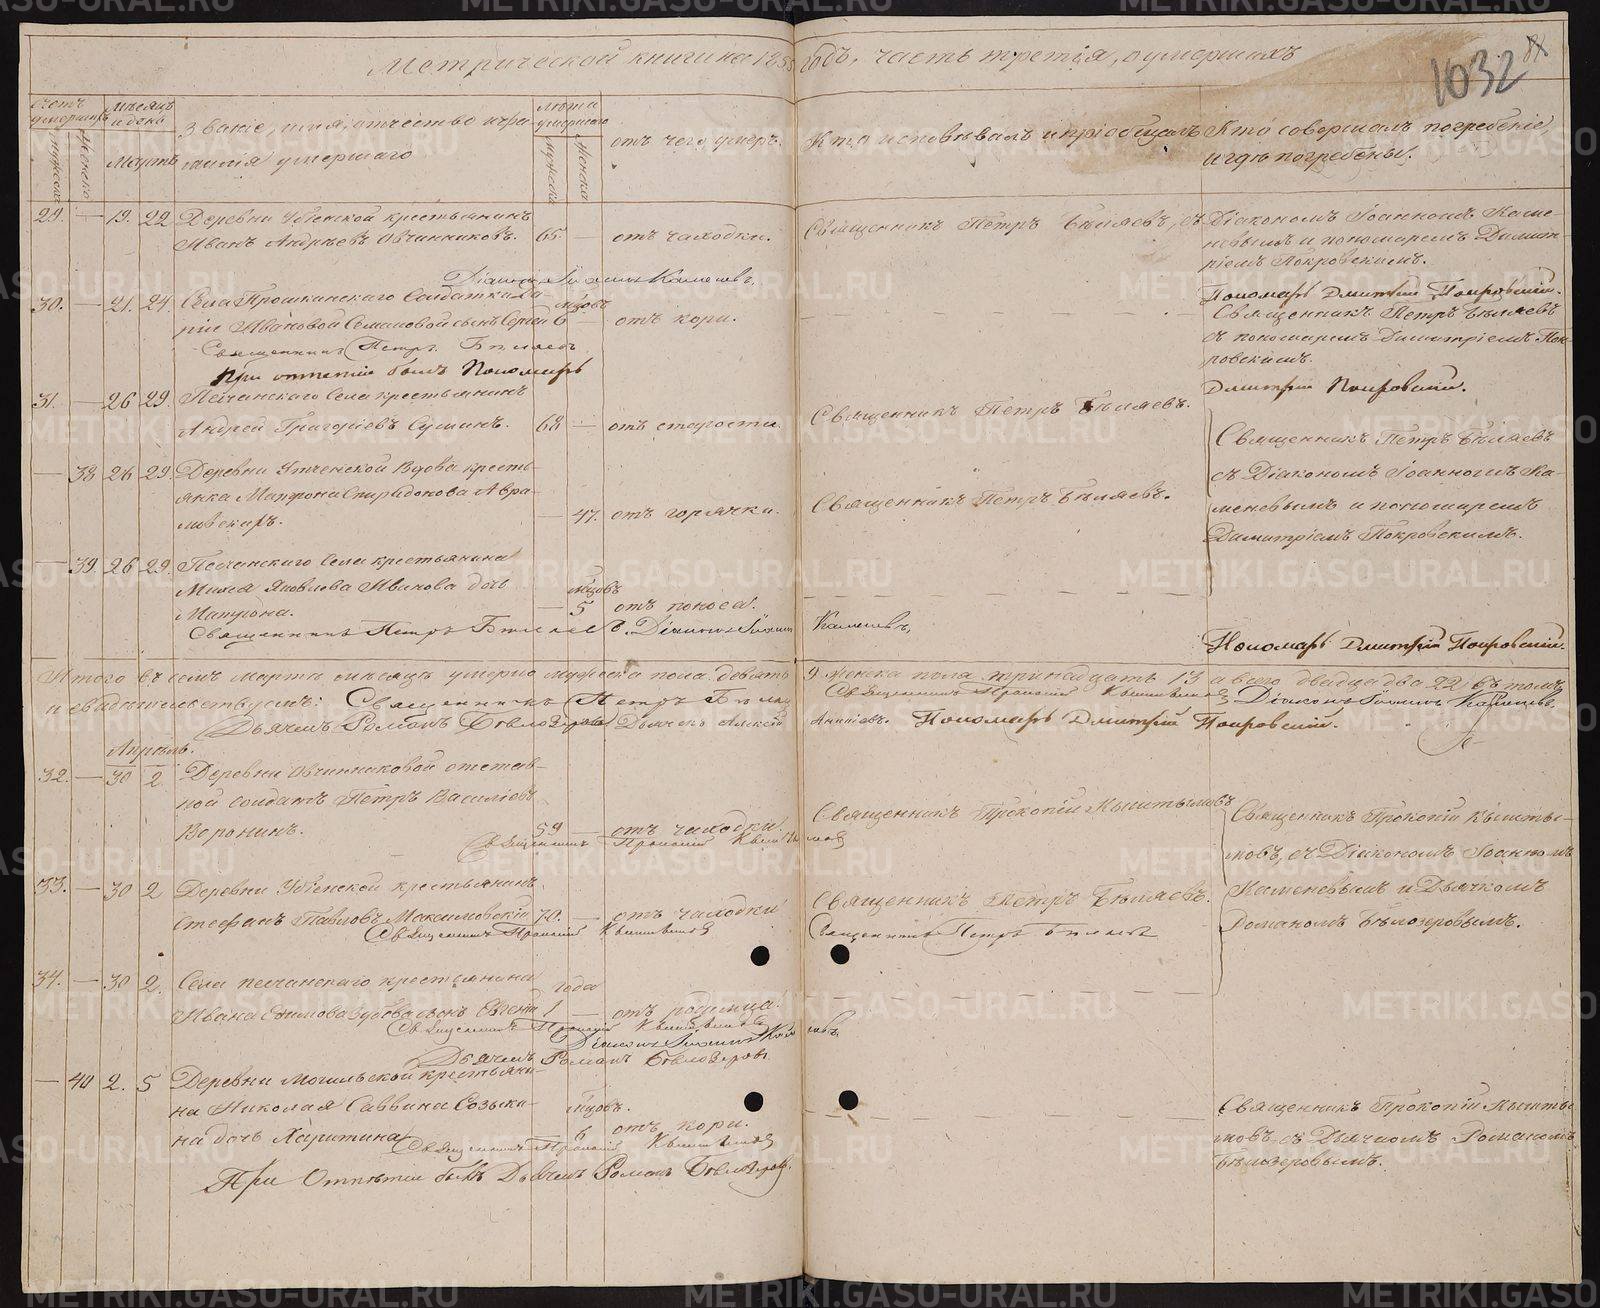 Метрической книги на 1855 годъ, часть третія, о умершихъ
1032
счетъ умершихъ
мужеска
женска
мѣсяцъ и день
Мартъ
Званіе, имя, отчество и фамилія умершаго
лѣта умершаго
Мужеска
Женска
отъ чего умеръ.
Кто исповѣвалъ и пріобщалъ
Кто совершалъ погребеніе, и гдѣ погребены.
29. — 19. 22 Деревни крестьянинъ
Иванъ Андрѣевъ Овчинниковъ. 65. — отъ чаходки.
Священникъ Петръ Бѣляевъ, съ Діакономъ Іоанномъ Каме-
невымъ и пономаремъ Димит-
ріемъ Покровскимъ.
Діаконъ Іоаннъ Каменевъ
Пономарь Дмитрій Покровскій.
30. — 21. 24. Села Прошкинскаго Солдатки Да-
ріи Ивановой Семаковой сынъ Сергей 6 мцовъ — отъ кори.
Священникъ Петръ Бѣляевъ
съ пономаремъ Димитріемъ Пок-
ровскимъ.
Священникъ Петръ Бѣляевъ
При отпетіи былъ Пономарь
Дмитрій Покровскій.
31. — 26 29. Песчанскаго Села крестьянинъ
Андрей Григоріевъ Сушинъ. 68 — отъ старости
Священникъ Петръ Бѣляевъ.
Священникъ Петръ Бѣляевъ
съ Діакономъ Іоанномъ Ка-
меневымъ и пономаремъ
Димитріемъ Покровскимъ.
— 38 26 29. Деревни Вдова кресть-
янка Матрона Спиридонова Авра-
— 47. отъ горячки.
Священникъ Петръ Бѣляевъ.
— 39. 26 29. Песчанскаго Села крестьянина
Яковлева Иванова дочь
Матрона. — 5 мцовъ отъ поноса.
Священникъ Петръ Бѣляевъ. Діаконъ Іоаннъ Каменевъ,
Пономарь Дмитрій Покровскій.
Итого въ семъ Мартѣ мѣсяцѣ умерло мужеска пола девять 9 женска пола тринадцать 13 а всего двадцадва 22 въ томъ
и свидѣтельствуемъ: Священникъ Петръ Бѣляевъ Священникъ Прокопій Діаконъ Іоаннъ Каменевъ.
Дьячекъ Романъ Бѣлозеровъ Дьячекъ Алексѣй Пономарь Дмитрій Покровскій.
Апрѣль.
32. — 30 2 Деревни Овчинниковой отстав-
ной солдатъ Петръ Василіевъ
Воронинъ. 59 — отъ чаходки.
Священникъ Прокопій Кыштымовъ
Священникъ Прокопій Кышты-
мовъ, съ Діакономъ Іоанномъ
Каменевымъ и Дьячкомъ
Романомъ Бѣлозеровымъ.
Священникъ Прокопій Кыштымовъ
33. — 30 2 Деревни крестьянинъ
Стефанъ Павловъ Максимовскій 70. — отъ чаходки
Священникъ Петръ Бѣляевъ.
Священникъ Прокопій Кыштымовъ
Священникъ Петръ Бѣляевъ
34. — 30 2. Села песчанскаго крестьянина
Ивана Ефимова сынъ Евгеній 1 года — отъ родимца.
Священникъ Прокопій Кыштымовъ
Діаконъ Іоаннъ Каменевъ
Дьячекъ Романъ Бѣлозеровъ
— 40 2. 5 Деревни Могильской крестьяни-
на Николая Саввина Созыки-
на дочь Харитина 6 мцовъ. отъ кори.
Священникъ Прокопій Кышты-
мовъ, съ Дьячкомъ Романомъ
Бѣлозеровымъ.
Священникъ Прокопій Кыштымовъ
При Отпѣтіи былъ Дьячекъ Романъ Бѣлозеровъ.
METRIKI.GASO-URAL.RU